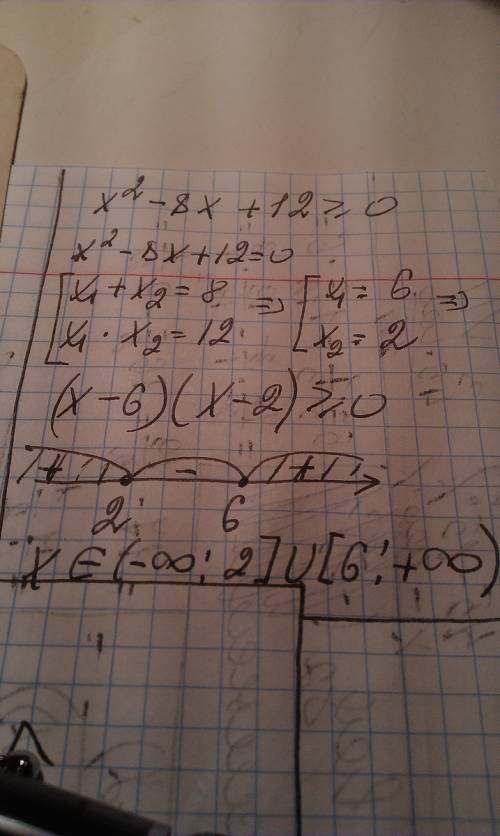 x² - 8x + 12 ≥ 0
x² - 8x + 12 = 0
[ x₁ + x₂ = 8 ⇒ [ x₁ = 6 ⇒
[ x₁ · x₂ = 12 [ x₂ = 2
(x - 6)(x - 2) ≥ 0
+ - +
2 6
x ∈ (-∞; 2] ∪ [6; +∞)